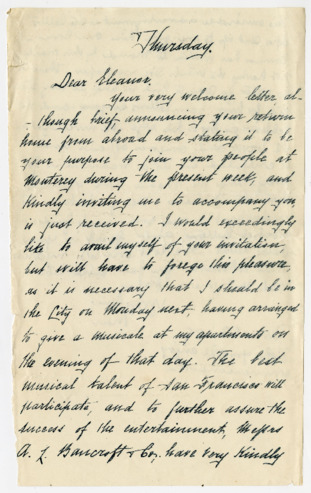 Thursday.
Dear Eleanor.
Your very welcome letter al-
- though brief, announcing your return
home from abroad and stating it to be
your purpose to join your people at
Monterey during the present week, and
kindly inviting me to accompany you
is just received. I would exceedingly
like to avail myself of your invitation,
but will have to forego this pleasure,
as it is necessary that I should be in
the City on Monday next, having arranged
to give a musicale at my apartments on
the evening of that day. The best
musical talent of San Francisco will
participate, and to further assure the
success of the entertainment, Messrs
A. L. Bancroft & Co. have very kindly